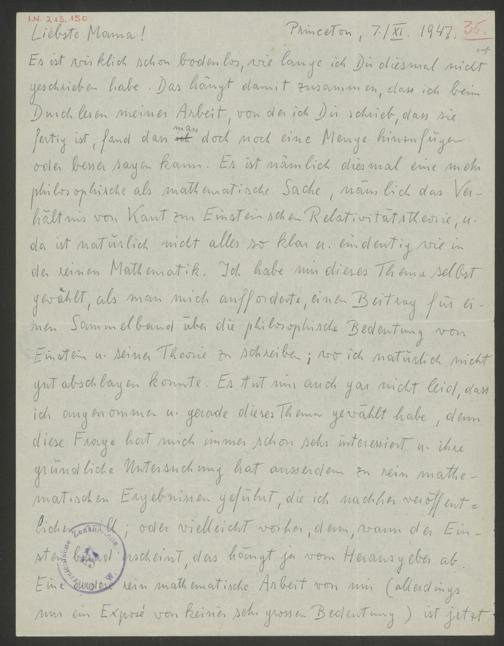 I.N. 213.150
Liebste Mama! Princeton, 7./XI. 1947. 35.
Es ist wirklich schon bodenlos, wie lange ich Dir diesmal nicht
geschrieben habe. Das hängt damit zusammen, dass ich beim
Durchlesen meiner Arbeit, von der ich Dir schrieb, dass sie
fertig ist, fand dass man doch noch eine Menge hinzufügen
oder besser sagen kann. Es ist nämlich diesmal eine mehr
philosophische als mathematische Sache, nämlich das Ver-
hältnis von Kant zur Einsteinschen Relativitätstheorie, u.
da ist natürlich nicht alles so klar u. eindeutig wie in
der reinen Mathematik. Ich habe mir dieses Thema selbst
gewählt, als man mich aufforderte, einen Beitrag für ei-
nen Sammelband über die philosophische Bedeutung von
Einstein u. seiner Theorie zu schreiben; wo ich natürlich nicht
gut abschlagen konnte. Es tut mir auch gar nicht leid, dass
ich angenommen u. gerade dieses Thema gewählt habe, denn
diese Frage hat mich immer schon sehr interessiert u. ihre
gründliche Untersuchung hat ausserdem zu rein mathe-
matischen Ergebnissen geführt, die ich nachher veröffent=
lichen; oder vielleicht vorher, denn, wann der Ein-
erscheint, das hängt ja vom Herausgeber ab.
Eine rein mathematische Arbeit von mir (allerdings
nur ein Exposé von keiner sehr grossen Bedeutung) ist jetzt